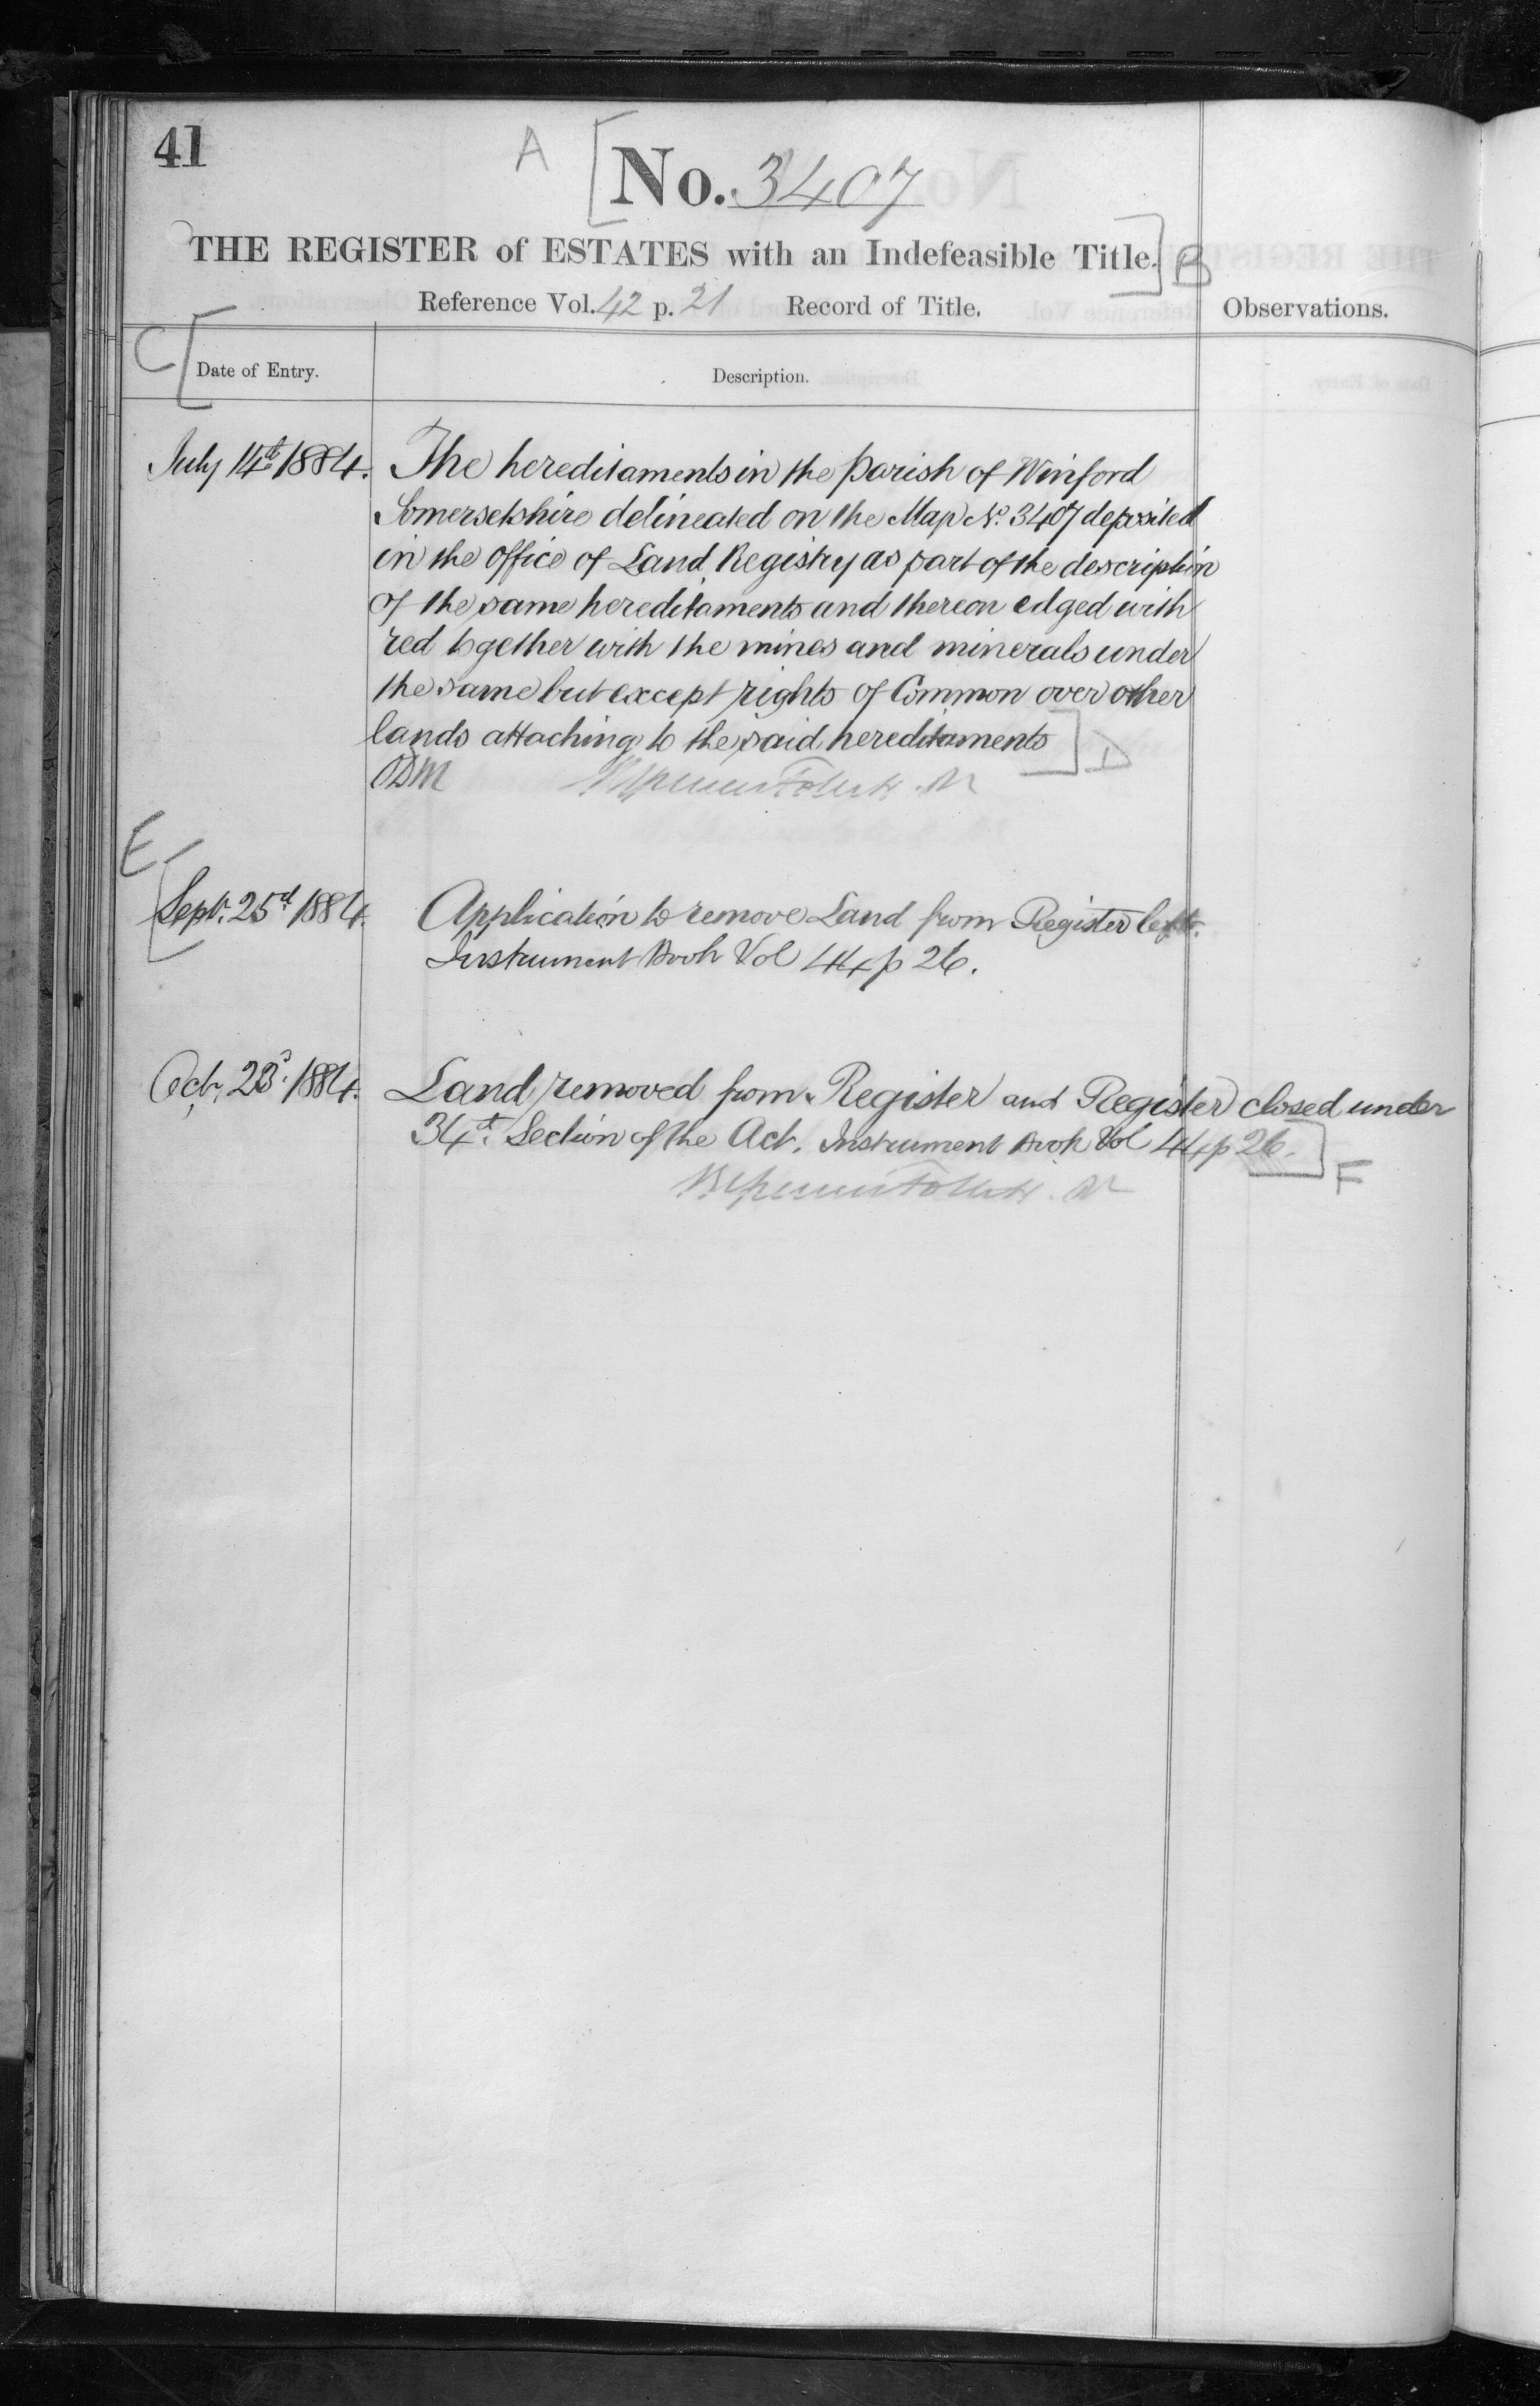 41
A
No. 3407
THE REGISTER of ESTATES with an Indefeasible Title.
B
Reference Vol. 42 p. 21 Record of Title.
Observations.
C
Date of Entry.
Description.
July 14th 1884.
The hereditaments in the Parish of Winford
Somersetshire delineated on the Map No. 3407 deposited
in the Office of Land Registry as part of the description
of the same hereditaments and thereon edged with
red together with the mines and minerals under
the same but except rights of Common over other
lands attaching to the said hereditaments
D
E
Sept. 25d 1884.
Application to remove Land from Register left.
Instrument Book Vol 44 p 26.
Oct. 23d. 1884.
Land removed from Register and Register closed under
34th. Section of the Act. Instrument Book Vol 44 p 26.
F